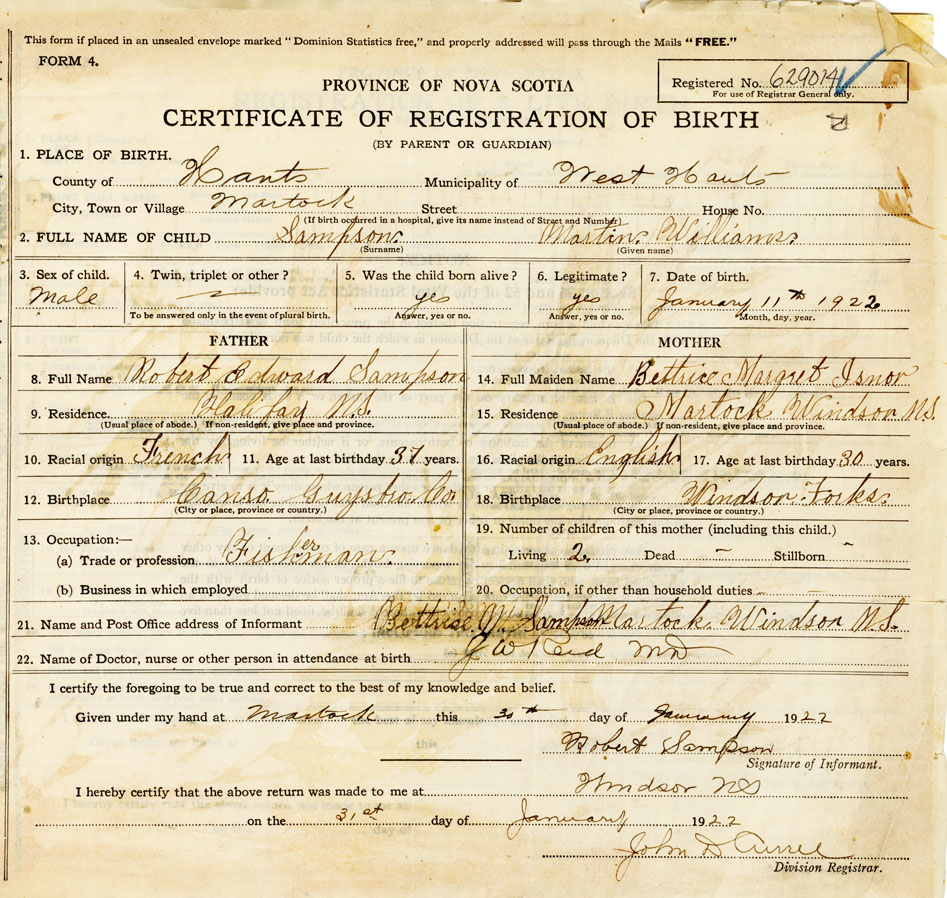 This form if placed in an unsealed envelope marked "Dominion Statistics free," and properly addressed will pass through the Mails "FREE."
FORM 4.
Registered No. 629014
For use of Registrar General only.
PROVINCE OF NOVA SCOTIA
CERTIFICATE OF REGISTRATION OF BIRTH
(BY PARENT OR GUARDIAN)
1. PLACE OF BIRTH.
County of Hants Municipality of West Hants
City, Town or Village Martock Street House No.
(If birth occurred in a hospital, give its name instead of Street and Number)
2. FULL NAME OF CHILD Sampson. Martin. Williams.
(Surname) (Given name)
3. Sex of child. 4. Twin, triplet or other? 5. Was the child born alive? 6. Legitimate? 7. Date of birth.
Male — yes yes January 11th 1922
To be answered only in the event of plural birth. Answer, yes or no. Answer, yes or no. Month, day, year.
FATHER
8. Full Name Robert Edward Sampson
9. Residence. Halifax N.S.
(Usual place of abode.) If non-resident, give place and province.
10. Racial origin French 11. Age at last birthday 37 years.
12. Birthplace Canso Guysbro. Co
(City or place, province or country.)
13. Occupation:—
(a) Trade or profession Fisherman.
(b) Business in which employed
MOTHER
14. Full Maiden Name Bettrice Margret Isnor
15. Residence Martock Windsor N.S.
(Usual place of abode.) If non-resident, give place and province.
16. Racial origin English 17. Age at last birthday 30 years.
18. Birthplace Windsor. Forks.
(City or place, province or country.)
19. Number of children of this mother (including this child.)
Living 2. Dead – Stillborn –
20. Occupation, if other than household duties –
21. Name and Post Office address of Informant Bettrise. M. Sampson Martock. Windsor N.S.
22. Name of Doctor, nurse or other person in attendance at birth J W Reid MD
I certify the foregoing to be true and correct to the best of my knowledge and belief.
Given under my hand at Martock this 30th day of January 1922
Robert Sampson
Signature of Informant.
I hereby certify that the above return was made to me at Windsor NS
on the 31st day of January 1922
John D
Division Registrar.